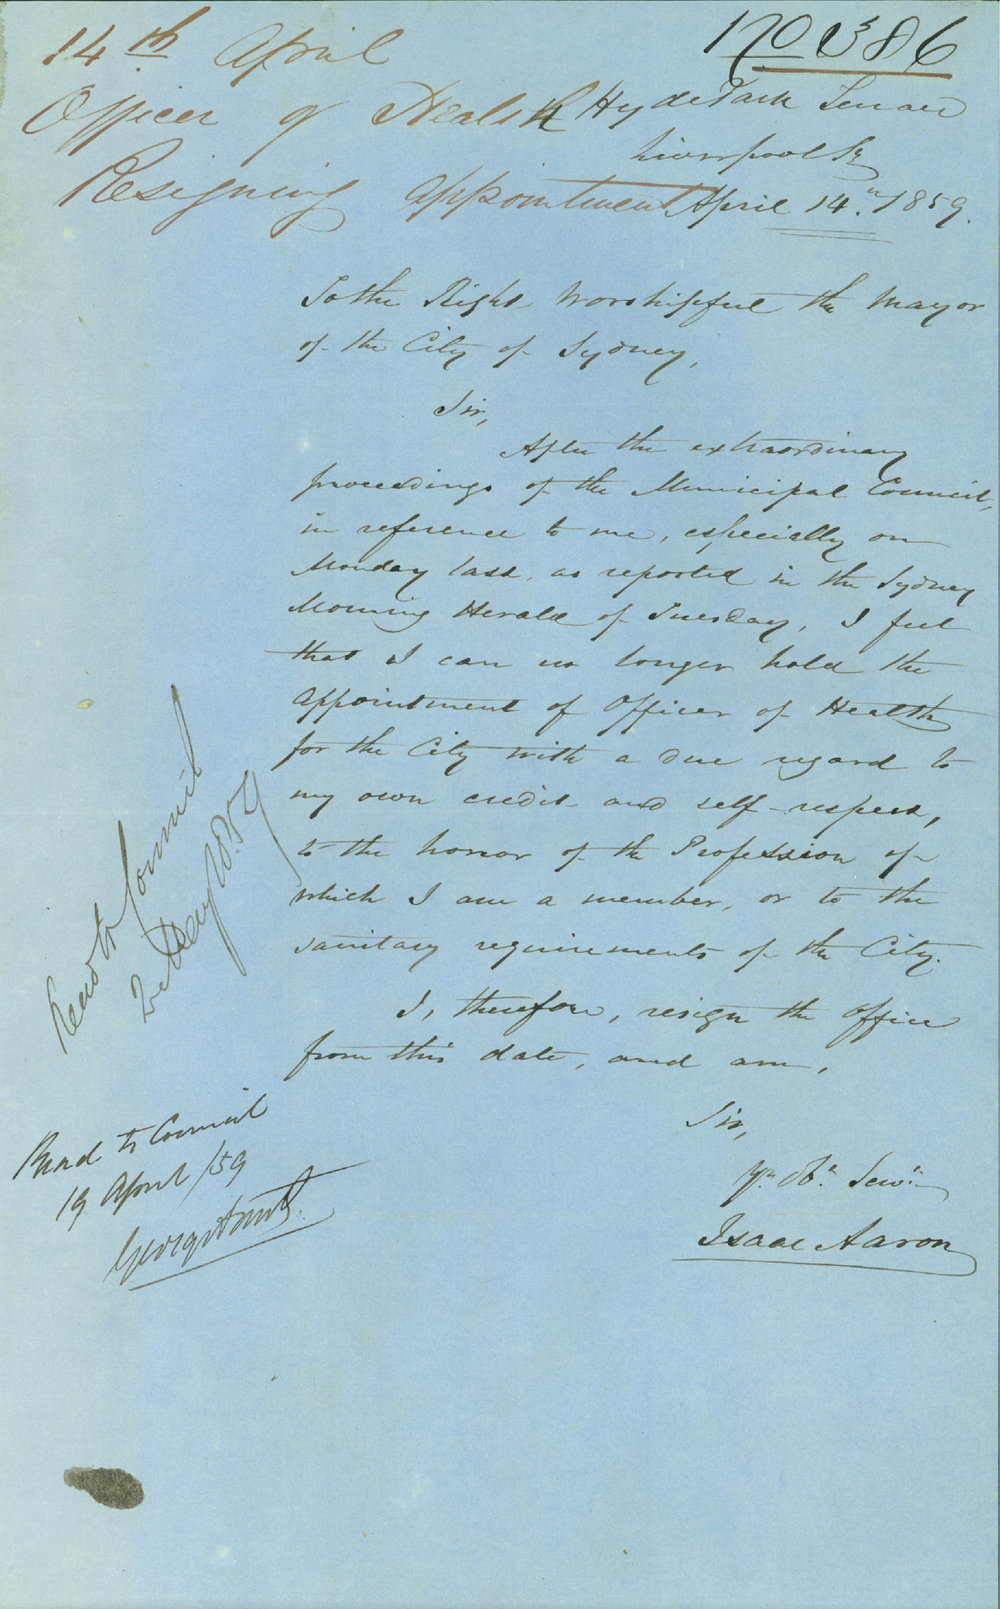 14th April
Officer of Health
Resigning appointment
No 386
Hyde Park Terrace
Liverpool St
April 14th 1859.
To the Right Worshipful the Mayor
of the City of Sydney,
Sir,
After the extraordinary
proceedings of the Municipal Council,
in reference to me, especially on
Monday last, as reported in the Sydney
Morning Herald of Tuesday, I feel
that I can no longer hold the
appointment of Officer of Health
for the City with a due regard to
my own credit and self-respect,
to the honor of the Profession of
which I am a member, or to the
sanitary requirements of the City.
I, therefore, resign the office
from this date, and am,
Sir,
Yr. Obt. Servt.
Isaac Aaron
Read to Council
2 May 1859
Read to Council
19 April /59
George